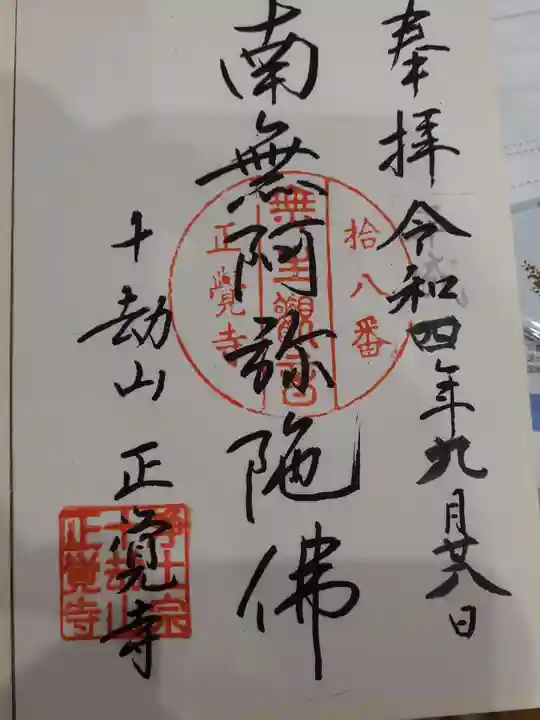 奉拝 令和四年九月廿八日
拾八番
南無阿弥陀佛
正覺寺
十劫山 正覚寺
浄土宗
十劫山
正覺寺